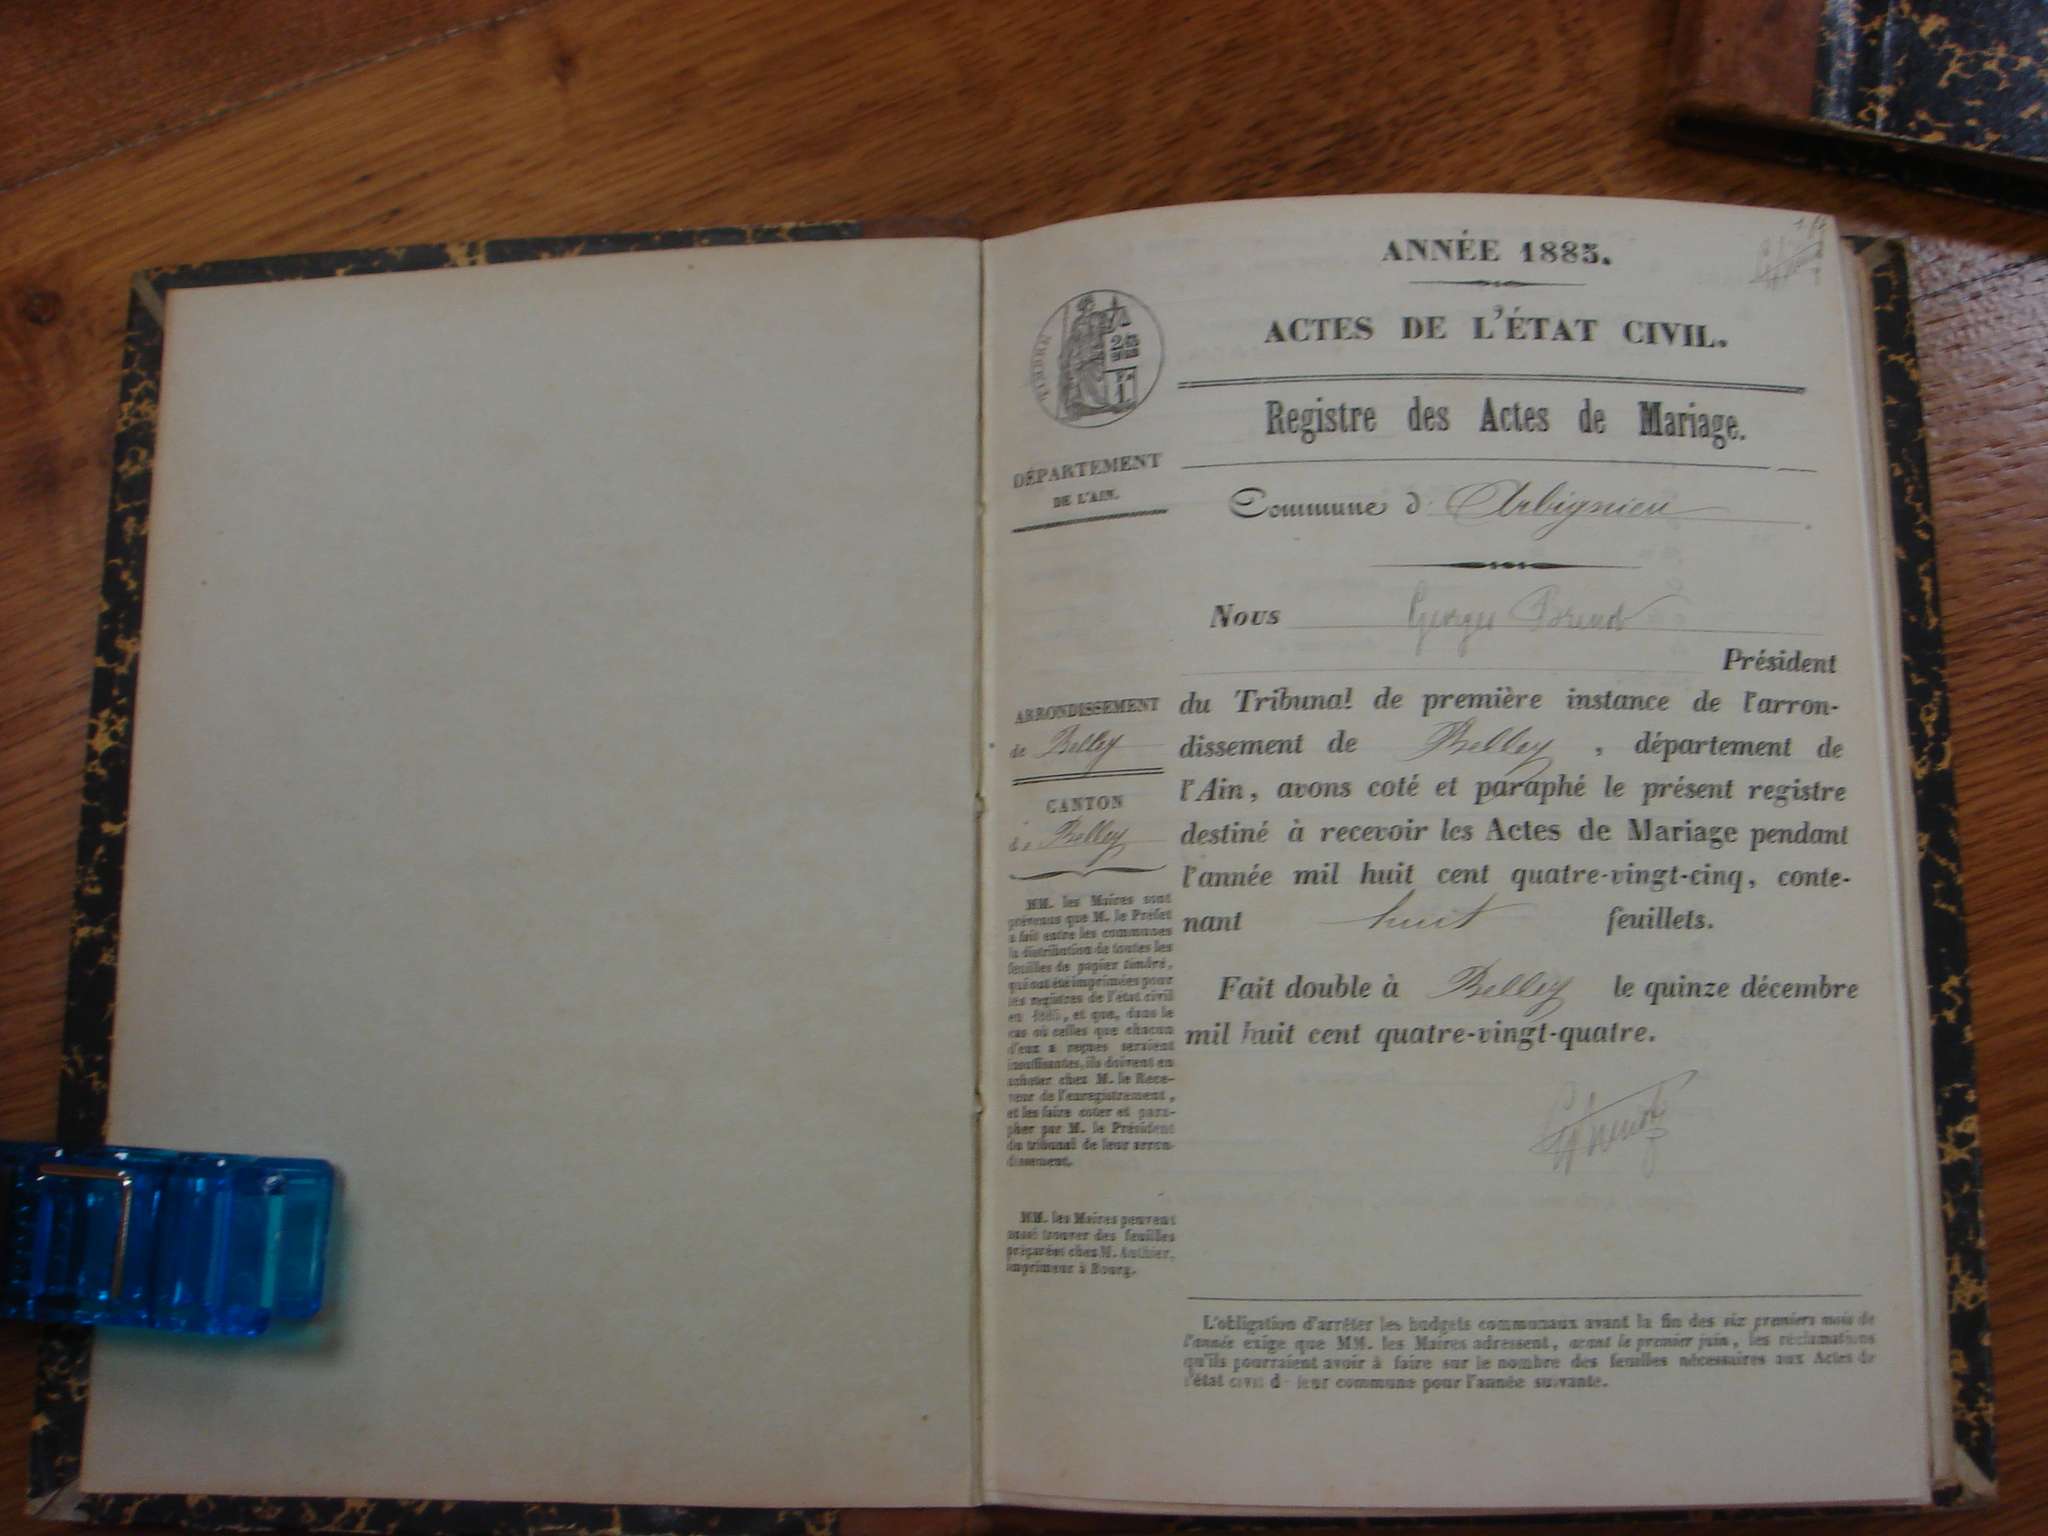 ANNÉE 1885.
ACTES DE L'ÉTAT CIVIL.
25
Registre des Actes de Mariage.
DÉPARTEMENT
DE L'AIN.
Commune d' Arbignieu
Nous Georges
Président
du Tribunal de première instance de l'arron-
dissement de Belley, département de
l'Ain, avons coté et paraphé le présent registre
destiné à recevoir les Actes de Mariage pendant
l'année mil huit cent quatre-vingt-cinq, conte-
nant huit feuillets.
Fait double à Belley le quinze décembre
mil huit cent quatre-vingt-quatre.
ARRONDISSEMENT
de Belley
CANTON
de Belley
MM. les Maires sont
prévenus que M. le Préfet
a fait entre les communes
la distribution de toutes les
feuilles de papier timbré,
qui ont été imprimées pour
les registres de l'état civil
en 1885, et que, dans le
cas où celles que chacun
d'eux a reçues seraient
insuffisantes, ils doivent en
acheter chez M. le Rece-
veur de l'enregistrement,
et les faire coter et para-
pher par M. le Président
du tribunal de leur arron-
dissement.
MM. les Maires peuvent
aussi trouver des feuilles
préparées chez M. Authier,
imprimeur à Bourg.
L'obligation d'arrêter les budgets communaux avant la fin des six premiers mois de
l'année exige que MM. les Maires adressent, avant le premier juin, les réclamations
qu'ils pourraient avoir à faire sur le nombre des feuilles nécessaires aux Actes de
l'état civil de leur commune pour l'année suivante.